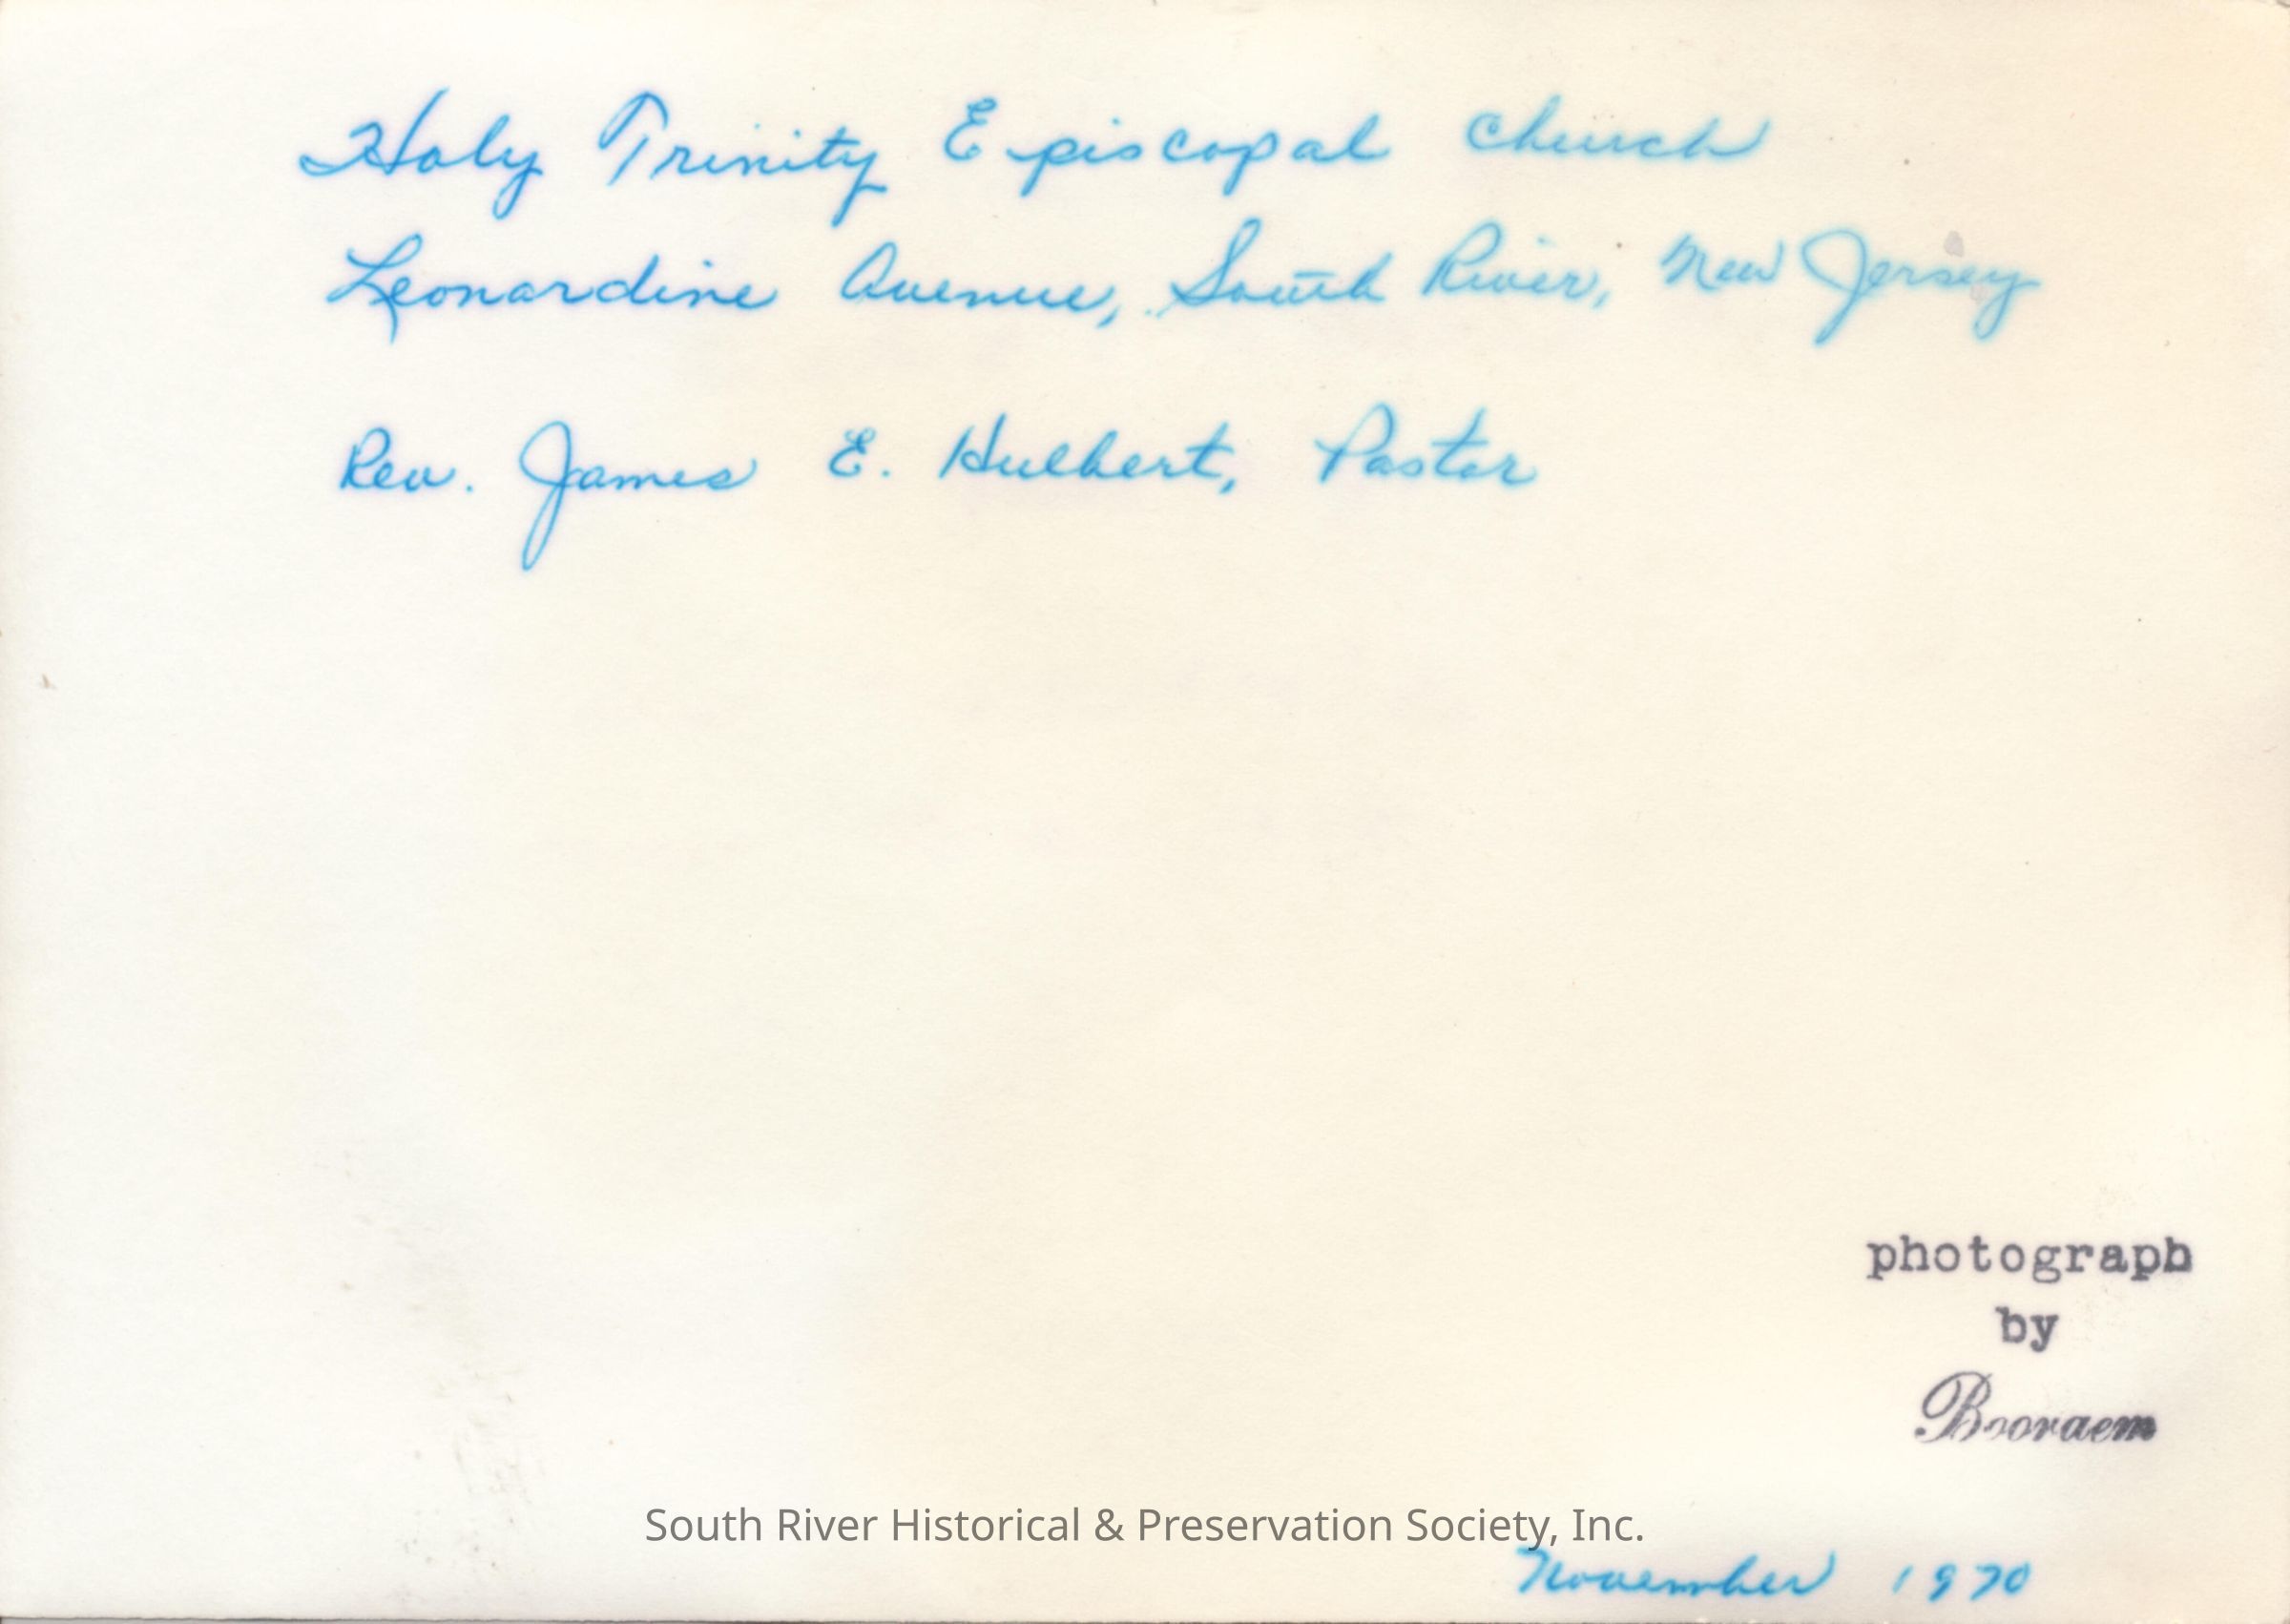 Holy Trinity Episcopal Church
Leonardine Avenue, South River, New Jersey
Rev. James E. Hulbert, Pastor
photograph
by
Booraem
South River Historical & Preservation Society, Inc.
November 1970